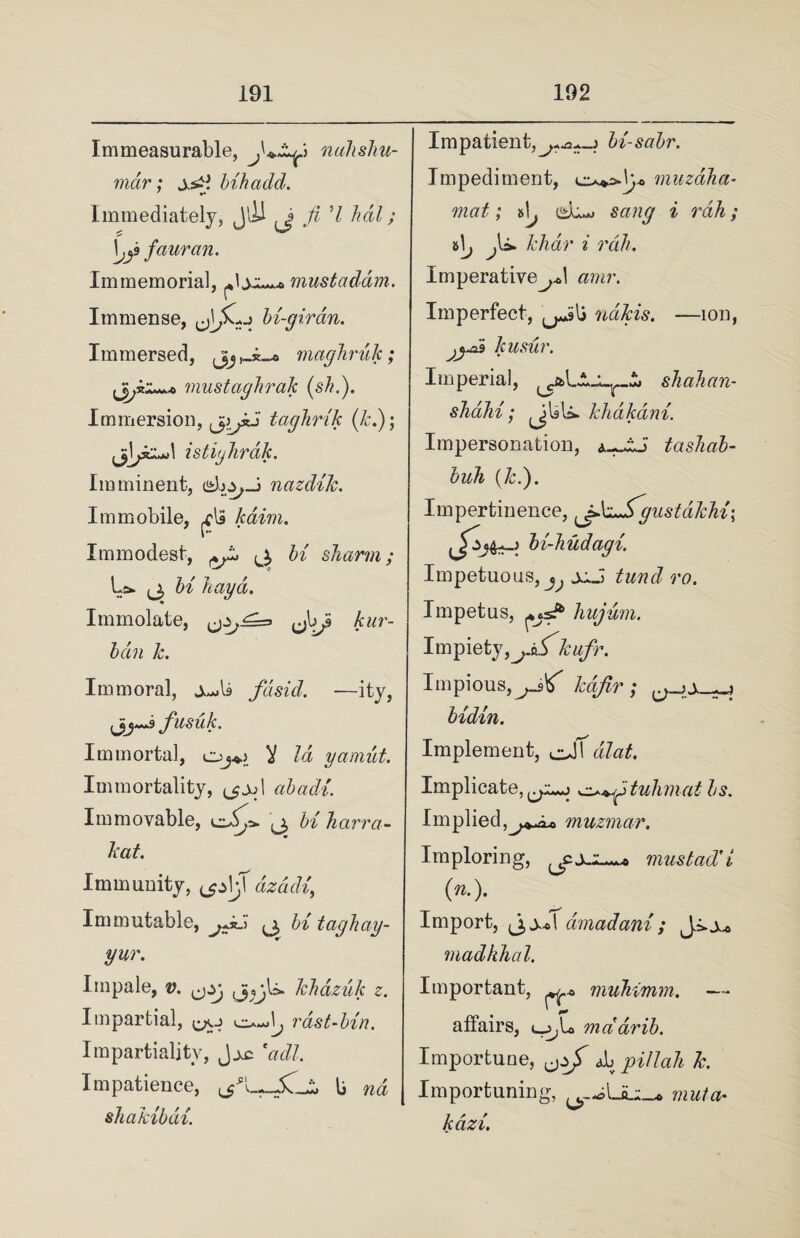 191
Immeasurable, نهشمار nahshu-
már; بیحد bíhadd.
Immediately, في الحال fi 'l hál;
فورا fauran.
Immemorial, مستدام mustadám.
Immense, بیگران bí-girán.
Immersed, مغروق maghrúk;
مستغرق mustaghrak (sh.).
Immersion, تغریق taghrík (k.);
استغراق istighrák.
Imminent, نزدیك nazdík.
Immobile, قائم káim.
Immodest, بی شرم bí sharm;
بی حیا bí hayá.
Immolate, قربان کردن kur-
bán k.
Immoral, فاسد fásid. —ity,
فسوق fusúk.
Immortal, لا یموت lá yamút.
Immortality, ابدی abadí.
Immovable, بی حرکت bí harra-
kat.
Immunity, آزادی ázádí,
Immutable, بی تغیر bí taghay-
yur.
Impale, v. خازوق زدن kházúk z.
Impartial, راست بین rást-bín.
Impartiality, عدل 'adl.
Impatience, نا شکیبائی ná
shakíbáí.
192
Impatient, بیصبر bí-sabr.
Impediment, مزاحمت muzáha-
mat; سنگ راه sang i ráh;
خار راه khár i ráh.
Imperative امر amr.
Imperfect, ناقص nákis. —ion,
قصور kusúr.
Imperial, شهنشاهی shahan-
sháhí; خاقانی khákání.
Impersonation, تشبه tashab-
buh (k.).
Impertinence, گستاخی gustákhí;
بیهودگی bí-húdagí.
Impetuous, تند رو tund ro.
Impetus, هجوم hujúm.
Impiety, کفر kufr.
Impious, کافر káfir; بیدین
bídín.
Implement, آلت álat.
Implicate, تهمت بستن tuhmat bs.
Implied, مضمر muzmar.
Imploring, مستدعی mustad'i
(n.).
Import, آمدنی ámadaní; مدخل
madkhal.
Important, مهم muhimm. —
affairs, مآرب ma'árib.
Importune, پله کردن pillah k.
Importuning, متقاضی muta-
kází.